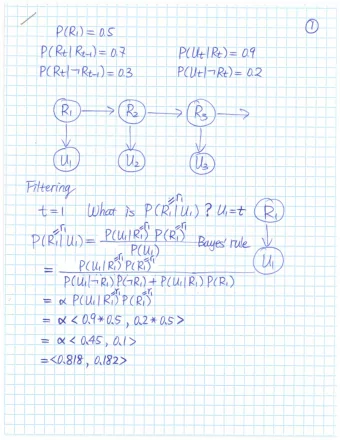 ①
P(R₁) = 0.5
P(Rt|Rt-1) = 0.7 P(Ut|Rt) = 0.9
P(Rt|¬Rt-1) = 0.3 P(Ut|¬Rt) = 0.2
R₁ R₂ R₃
U₁ U₂ U₃
Filtering
t=1 What is P(R₁=r₁|U₁)? U₁=t R₁
P(R₁=r₁|U₁) = P(U₁|R₁=r₁) P(R₁=r₁) / P(U₁) Bayes' rule U₁
= P(U₁|R₁=r₁) P(R₁=r₁) / P(U₁|¬R₁)P(¬R₁) + P(U₁|R₁)P(R₁)
= α P(U₁|R₁=r₁) P(R₁=r₁)
= α < 0.9 * 0.5 , 0.2 * 0.5 >
= α < 0.45, 0.1 >
= <0.818, 0.182>